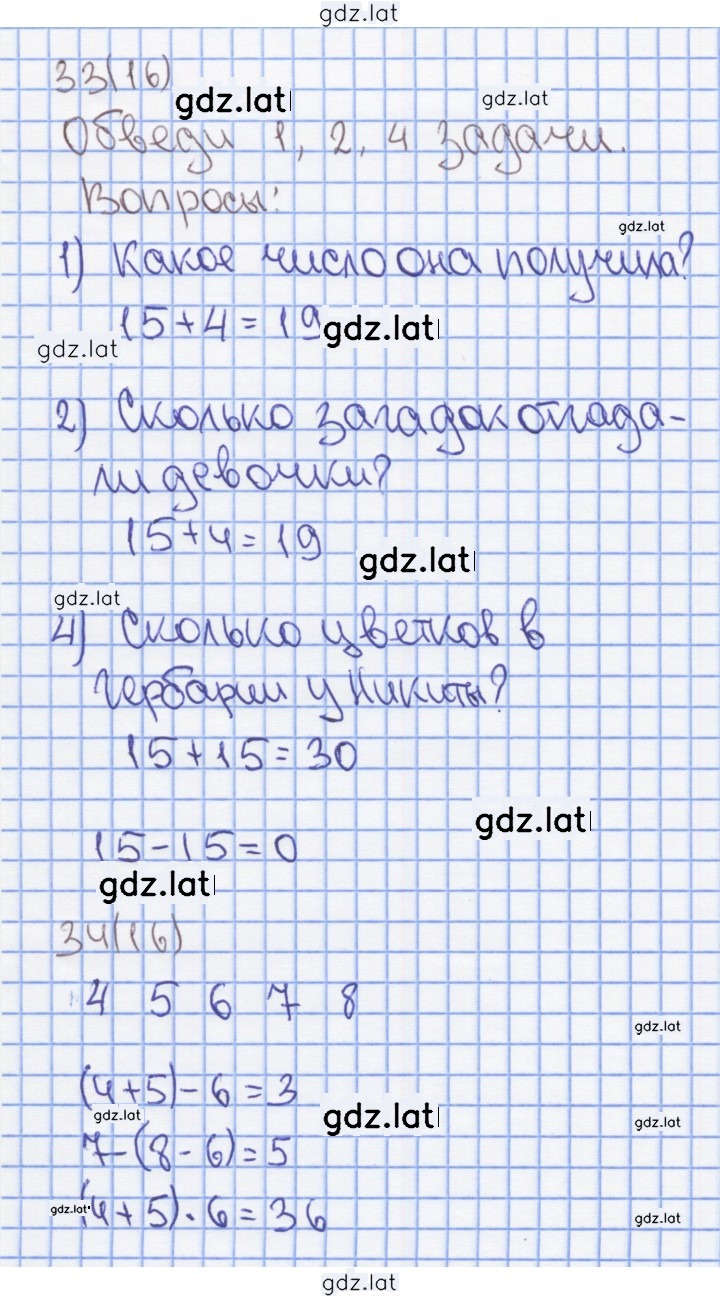 gdz.lat
33(16)
gdz.lat
gdz.lat
Обведи 1, 2, 4 задачи.
Вопросы:
gdz.lat
1) Какое число она получила?
15+4=19
gdz.lat
gdz.lat
2) Сколько загадок отгада-
ли девочки?
15+4=19
gdz.lat
gdz.lat
4) Сколько цветков в
гербарии у Никиты?
15+15=30
gdz.lat
15-15=0
gdz.lat
34(16)
4 5 6 7 8
gdz.lat
(4+5)-6=3
gdz.lat
gdz.lat
gdz.lat
7-(8-6)=5
gdz.lat
(4+5)·6=36
gdz.lat
gdz.lat